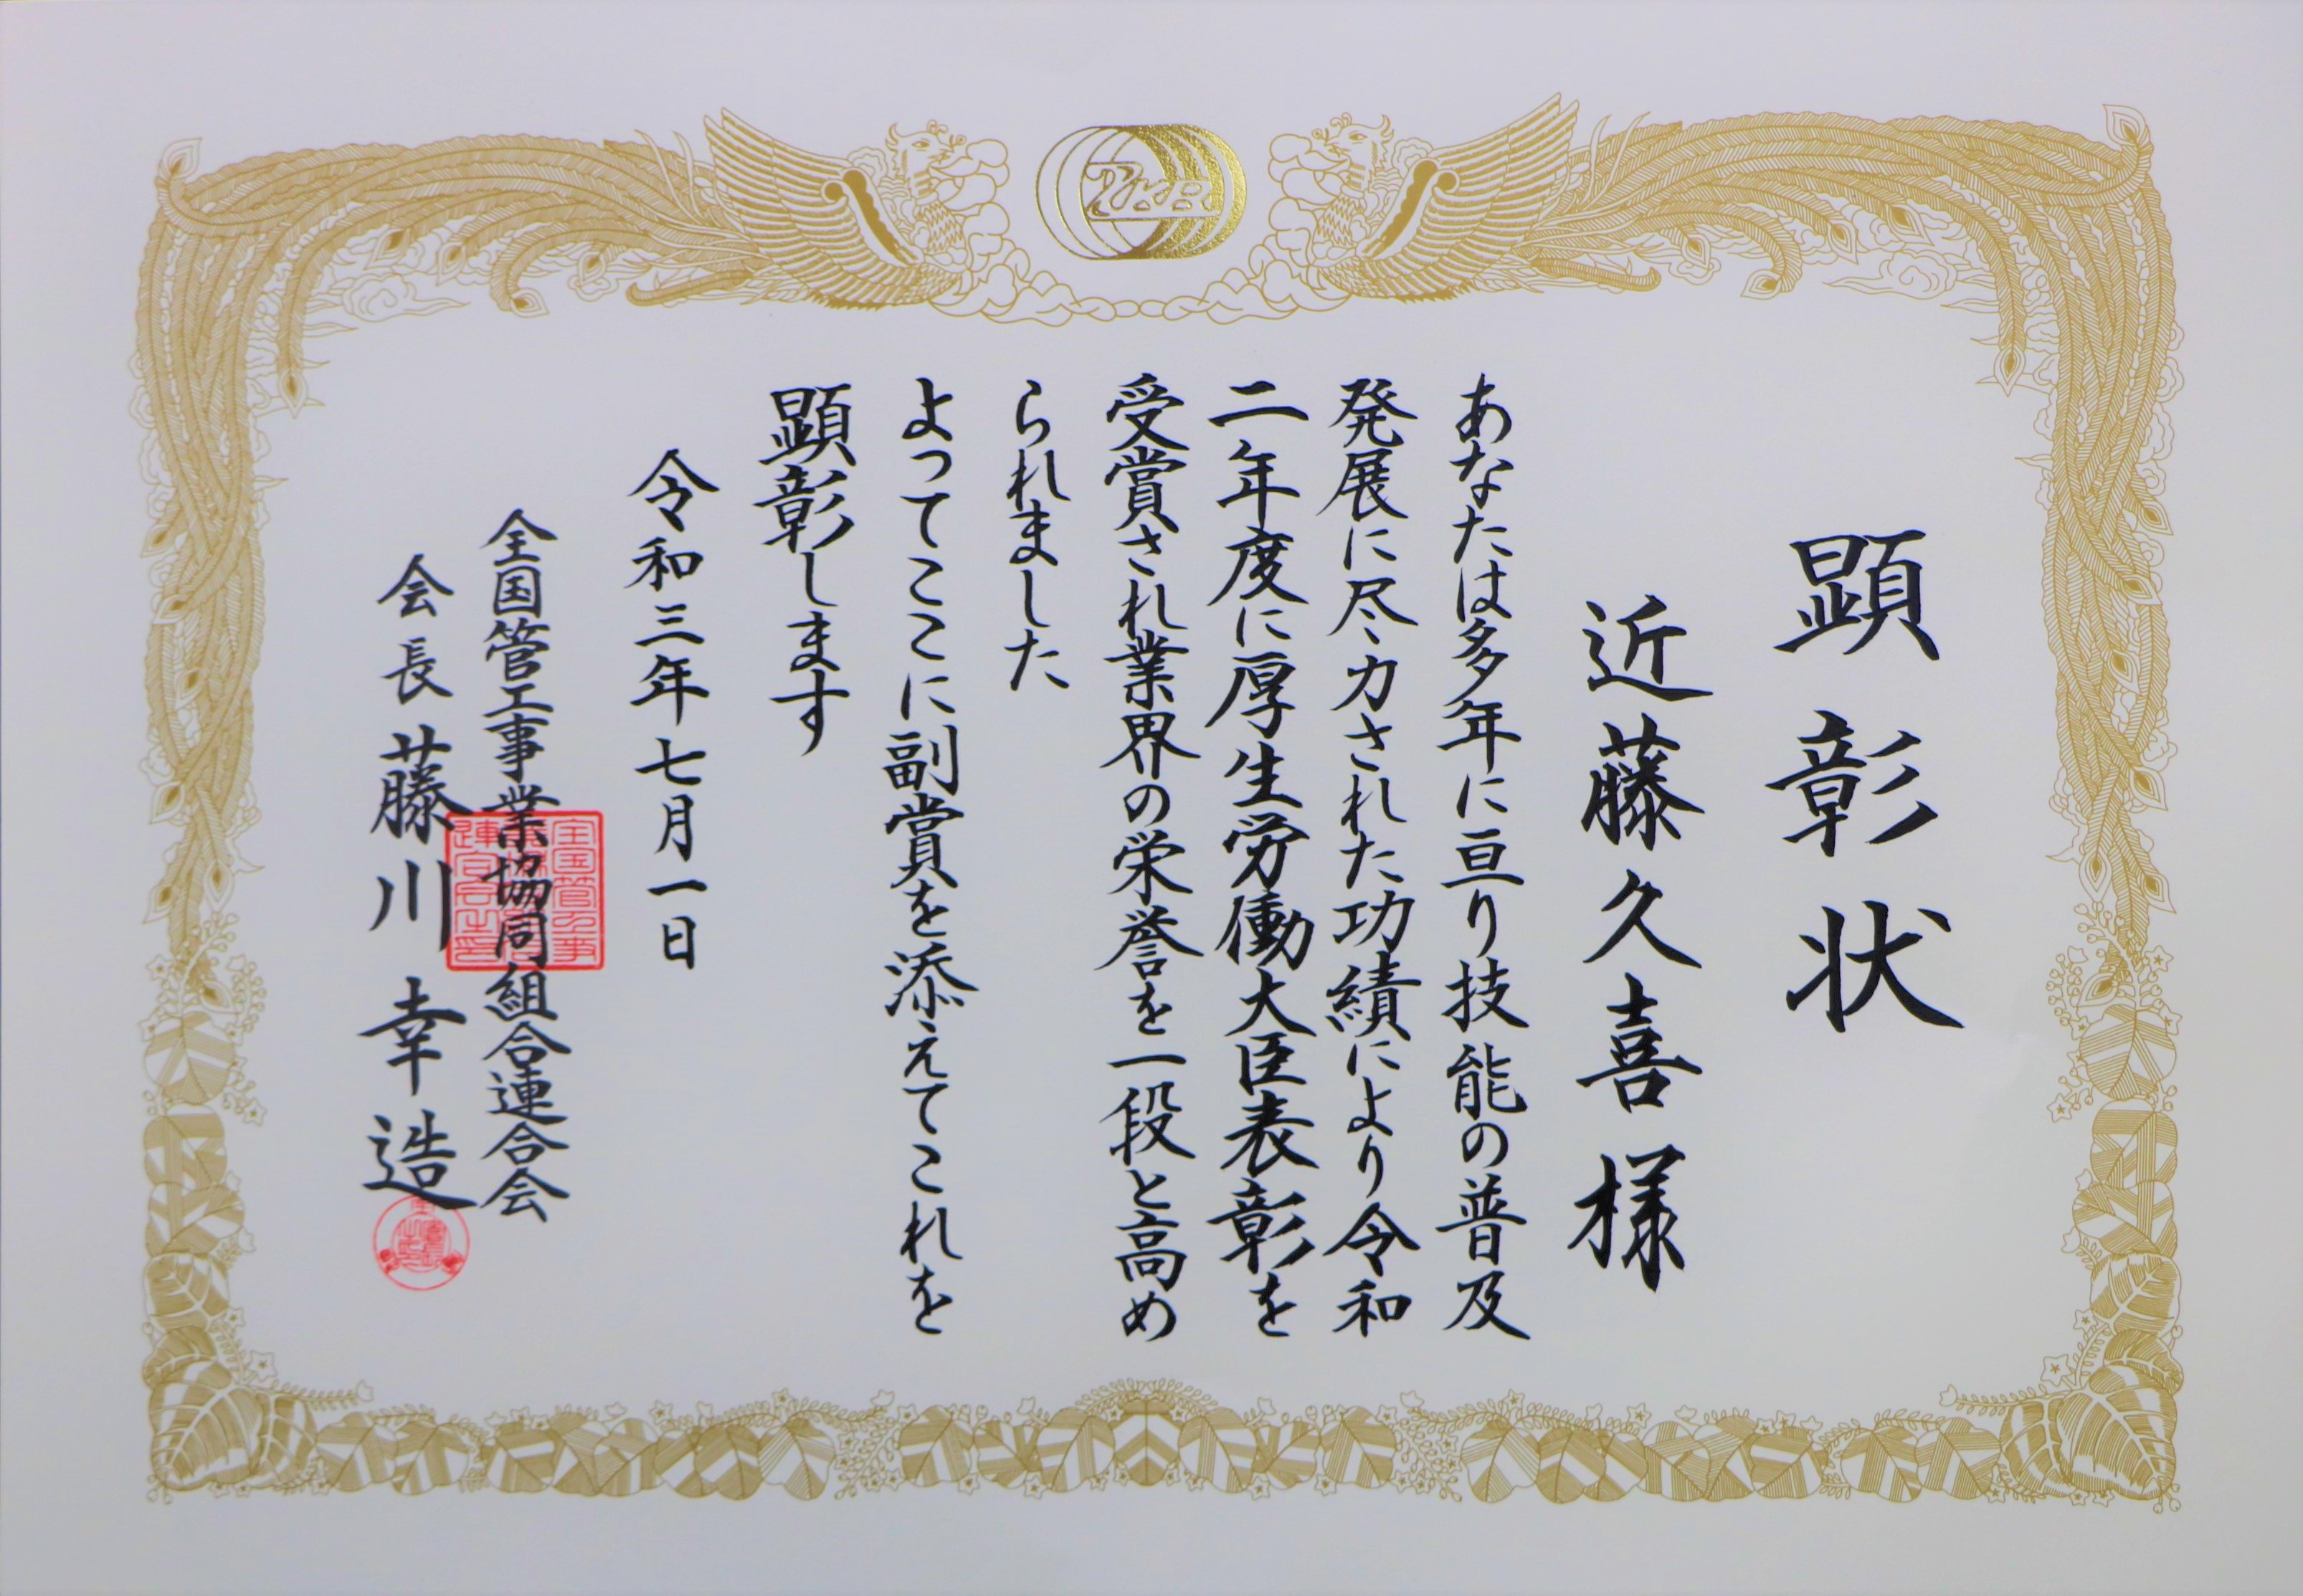 顕彰状
近藤久喜様
あなたは多年に亘り技能の普及
発展に尽力された功績により令和
二年度に厚生労働大臣表彰を
受賞され業界の栄誉を一段と高め
られました
よってここに副賞を添えてこれを
顕彰します
令和三年七月一日
全国管工事業協同組合連合会
会長 藤川幸造